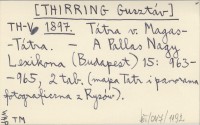 [THIRRING Gusztáv]
TH-V 1897. Tátra v. Magas-
-Tátra. — A Pallas Nagy
Lexikona (Budapest) 15: 963-
-965, 2 tab. (mapa Tatr i panorama
fotograficzna z Rysów).
TM